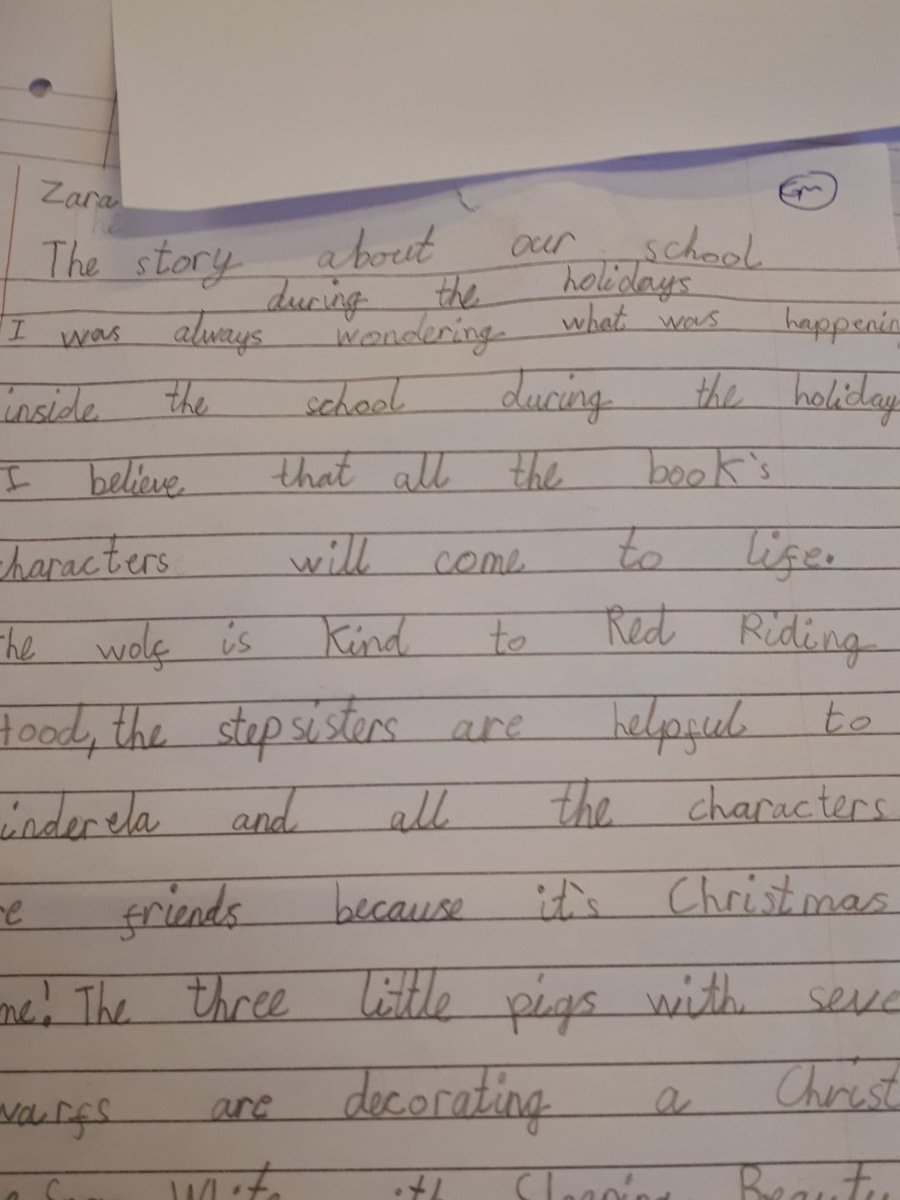 Zara
The story about our school
during the holidays
I was always wondering what was happenin
inside the school during the holiday
I believe that all the book's
characters will come to life.
he wolf is kind to Red Riding
Hood, the stepsisters are helpful to
inderela and all the characters
e friends because it's Christmas
me! The three little pigs with seve
warfs are decorating a Christ